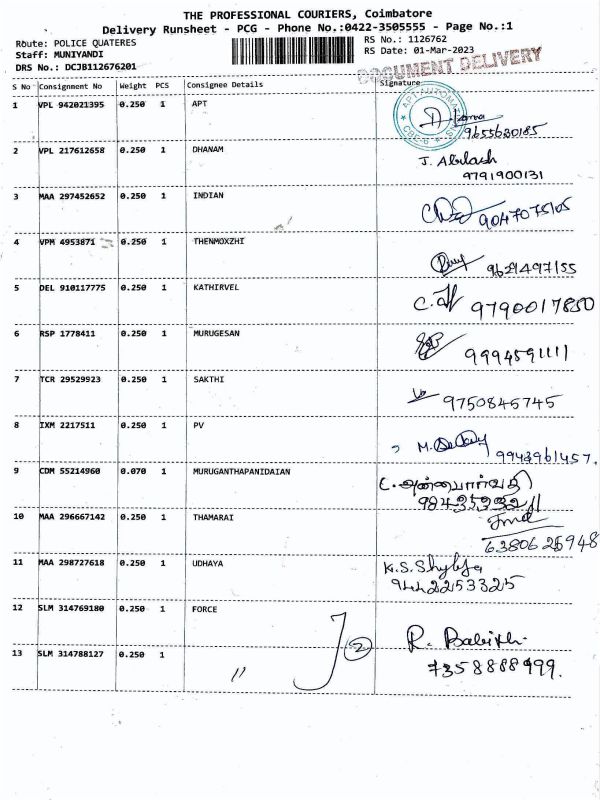 THE PROFESSIONAL COURIERS, Coimbatore
Delivery Runsheet - PCG - Phone No.:0422-3505555 - Page No.:1
Route: POLICE QUATERES
Staff: MUNIYANDI
DRS No.: DCJB112676201
RS No.: 1126762
RS Date: 01-Mar-2023
DOCUMENT DELIVERY
S No Consignment No Weight PCS Consignee Details Signature
1 VPL 942021395 0.250 1 APT
9655630185
2 VPL 217612658 0.250 1 DHANAM J. Abilash
9791900131
3 MAA 297452652 0.250 1 INDIAN 9047075105
4 VPM 4953871 0.250 1 THENMOXZHI
9629497155
5 DEL 910117775 0.250 1 KATHIRVEL 9790017850
6 RSP 1778411 0.250 1 MURUGESAN
9994591111
7 TCR 29529923 0.250 1 SAKTHI
9750845745
8 IXM 2217511 0.250 1 PV
9943961457.
9 CDM 55214960 0.070 1 MURUGANTHAPANIDAIAN
10 MAA 296667142 0.250 1 THAMARAI
6380626948
11 MAA 298727618 0.250 1 UDHAYA K.S. Shylja
9442253325
12 SLM 314769180 0.250 1 FORCE R.
13 SLM 314788127 0.250 1 〃 2 7358888999.